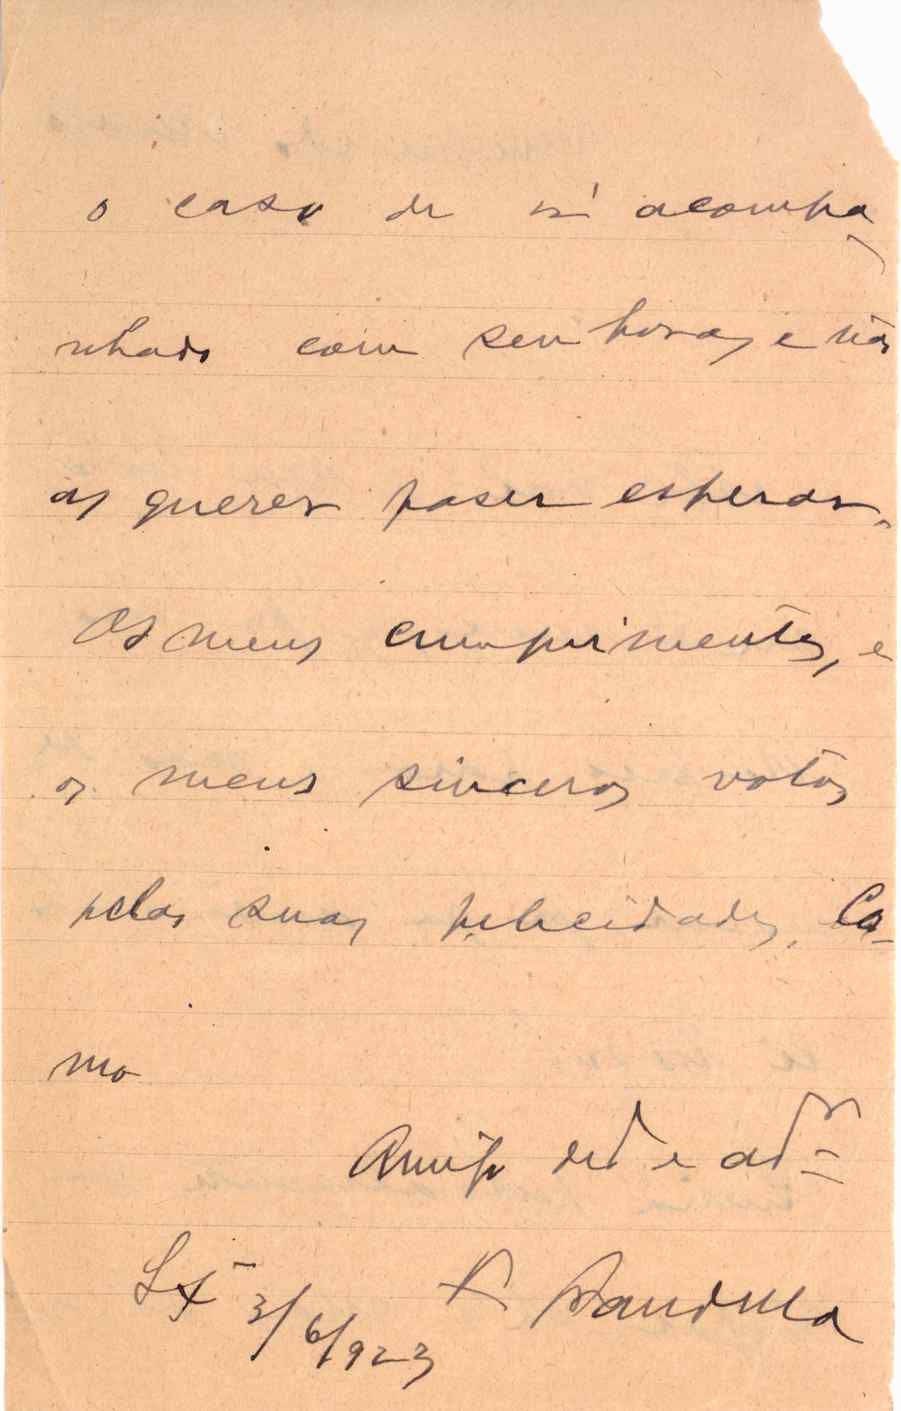 o caso de vir acompa
nhado com senhoras, e não
as querer fazer esperar.
Os meus cumprimentos, e
os meus sinceros votos
pelas suas felicidades, Co-
mo
Amigo ded e adr
Lx 3/6/923